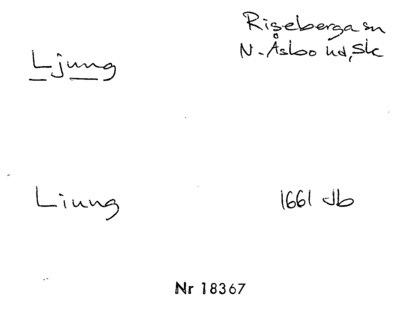 Riseberga sn
Ljung
N. Åsbo hd, Sk
Liung
1661 Jb
Nr 18367